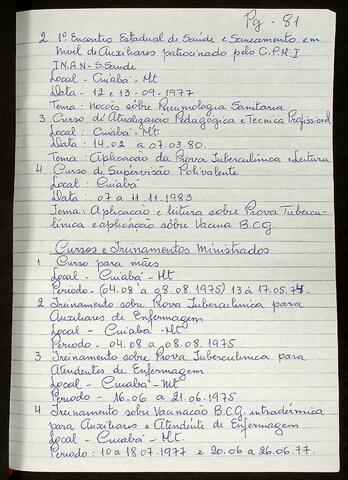 Pg - 81
2 1º Encontro Estadual de Saúde e Saneamento em
Nivel de Auxiliares patrocinado pelo C.P.M.I
I.N.A.N-S.Saude
Local - Cuiabá - Mt
Data - 12 e 13-09-1977
Tema: Nocões sôbre Pneumologia Sanitaria
3 Curso de Atualização Pedagógica e Tecnica Profissional
Local: Cuiabá - Mt
Data: 14.02 a 07.03.80.
Tema: Aplicação da Prova Tuberculinica e Leitura
4 Curso de Supervisão Polivalente
Local: Cuiabá
Data: 07 a 11.11.1983
Tema: Aplicação e leitura sobre Prova Tubercu-
línica e aplicação sôbre Vacina B.C.G.
Cursos e Treinamentos Ministrados
1 Curso para mães
Local - Cuiabá - Mt
Periodo - (04.08 a 08.08.1975) 13 à 17.05.74
2 Treinamento sobre Prova Tuberculinica para
Auxiliares de Enfermagem
Local - Cuiabá - Mt
Periodo - 04.08 a 08.08.1975
3 Treinamento sobre Prova Tuberculinica para
Atendentes de Enfermagem
Local - Cuiabá - Mt
Periodo - 16.06 a 21.06.1975
4 Treinamento sobre Vacinação B.C.G intradérmica
para Auxiliares e Atendente de Enfermagem
Local - Cuiabá - Mt.
Periodo: 10 a 18.07.1977 e 20.06 a 26.06.77.